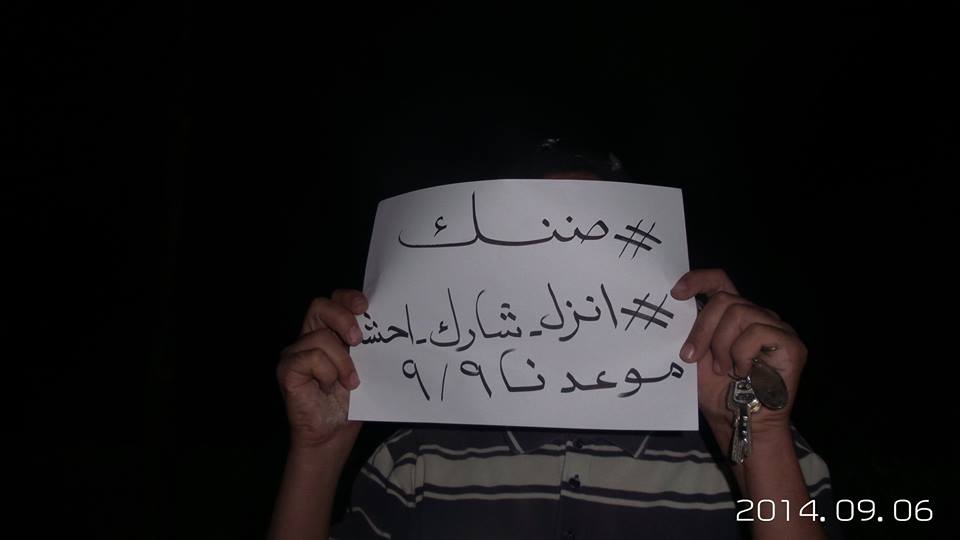 #ضنك
#انزل_شارك_احش
موعدنا ٩/٩
2014.09.06